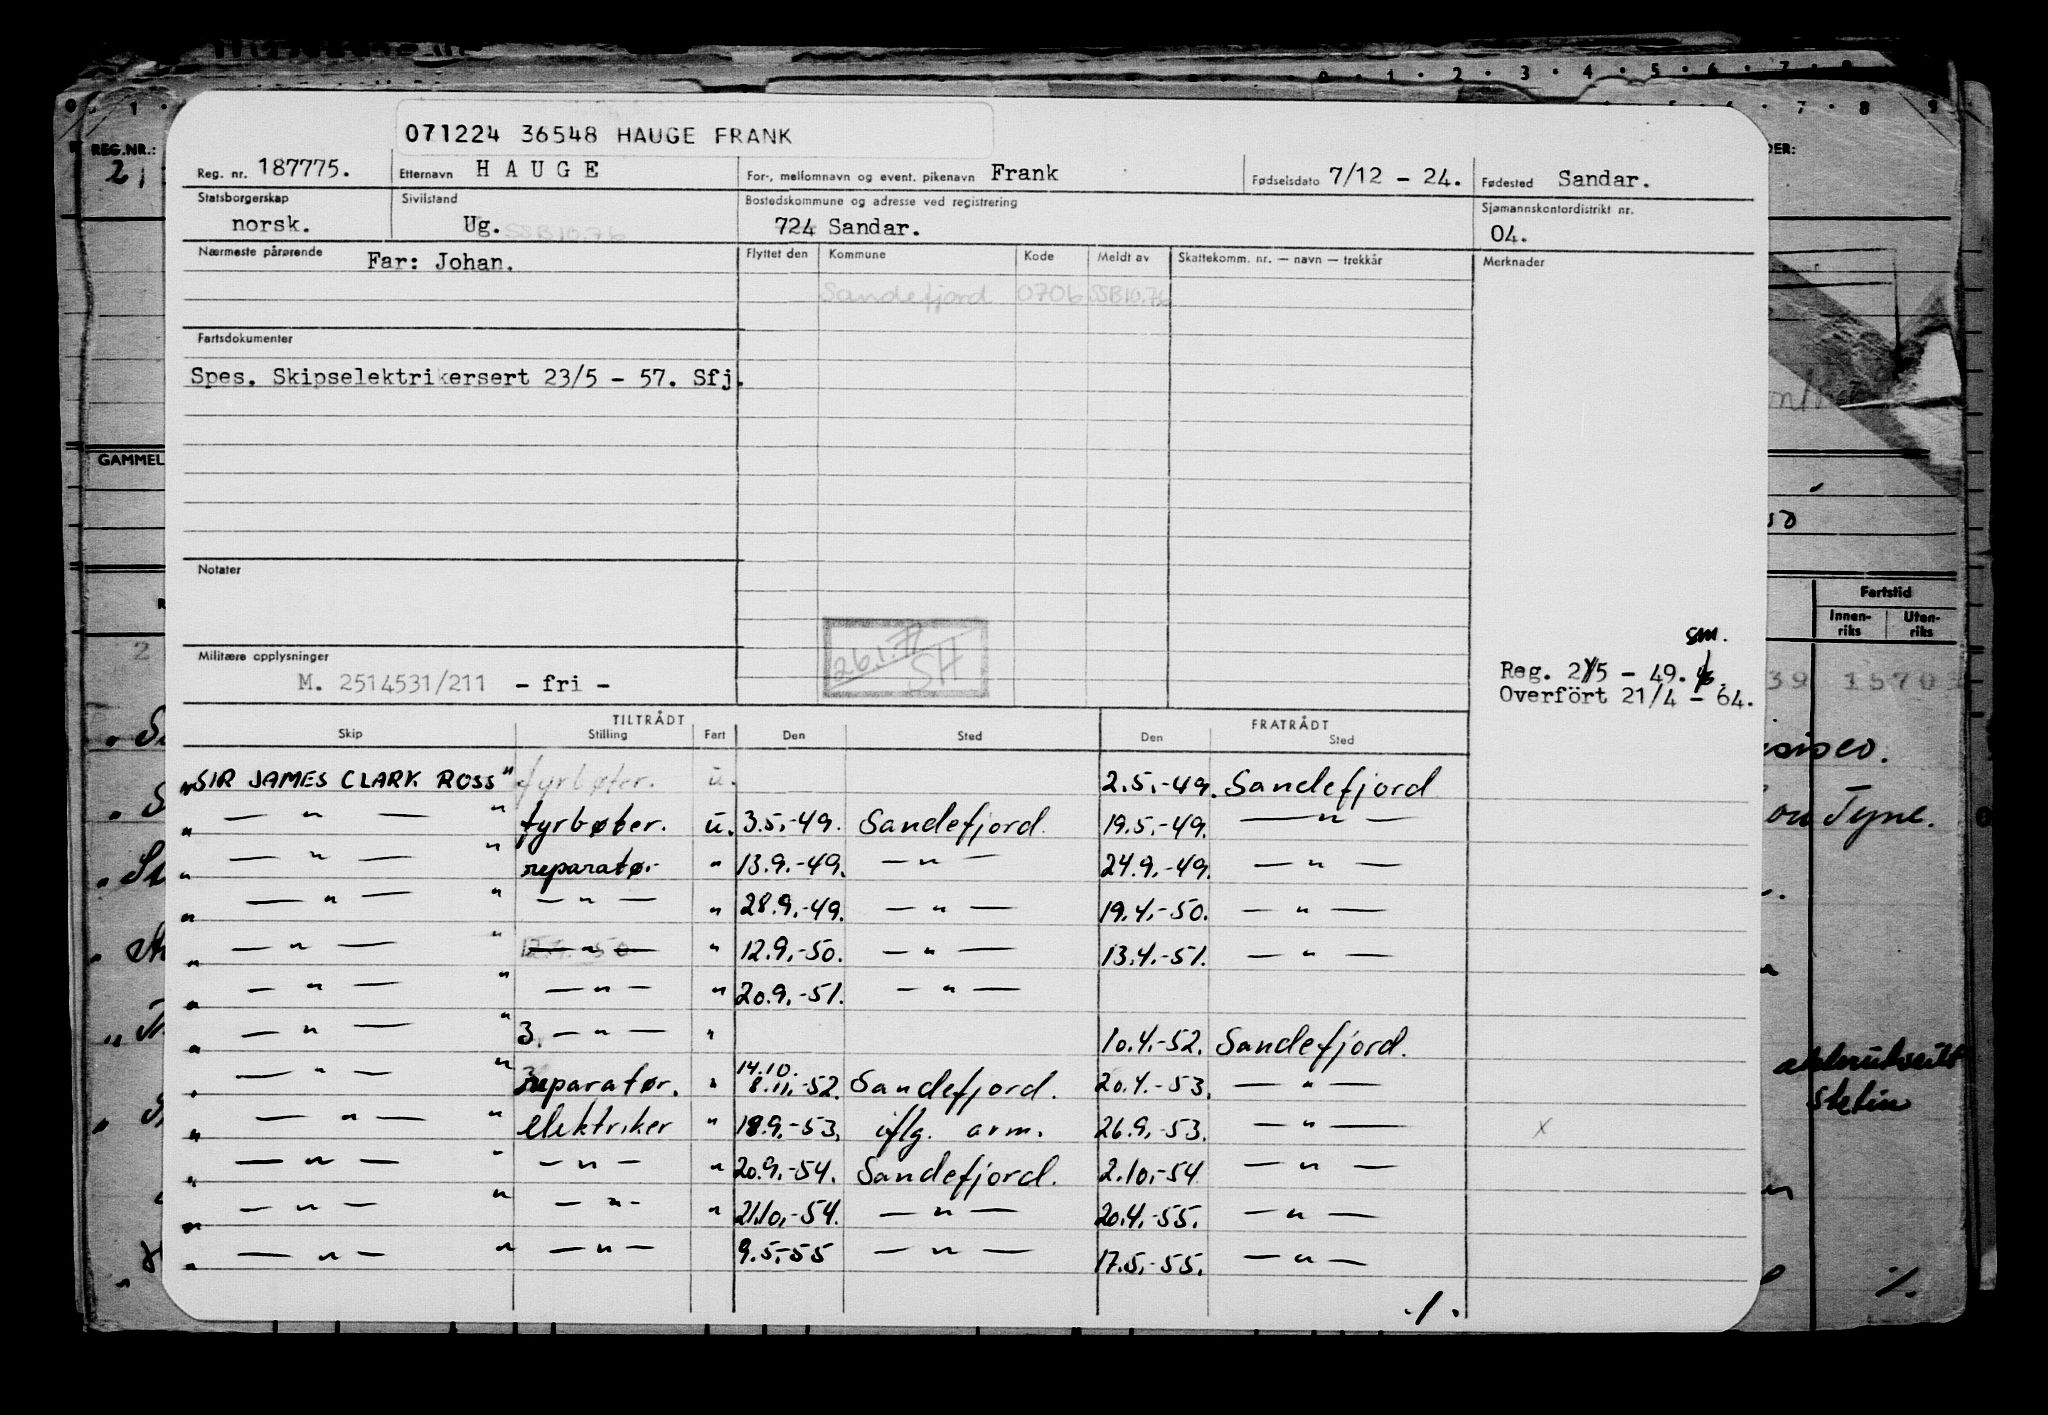 071224 36548 HAUGE FRANK
Reg. nr. 187775. Etternavn HAUGE For-, mellomnavn og event. pikenavn Frank Fødselsdato 7/12 - 24. Fødested Sandar.
Statsborgerskap norsk. Sivilstand Ug. SSB10.76 Bostedskommune og adresse ved registrering 724 Sandar. Sjømannskontordistrikt nr. 04.
Nærmeste pårørende Far: Johan. Flyttet den Kommune Kode Meldt av Skattekomm. nr. — navn — trekkår Merknader
Sandefjord 0706 SSB10.76
Fartsdokumenter
Spes. Skipselektrikersert 23/5 - 57. Sfj.
Notater
26.1.77 SH
sm.
Militære opplysninger
M. 2514531/211 - fri -
Reg. 2/5 - 49.
Overført 21/4 - 64.
TILTRÅDT FRATRÅDT
Skip Stilling Fart Den Sted Den Sted
"SIR JAMES CLARK ROSS" fyrbøter. u. 2.5.-49. Sandefjord
" — " — " fyrbøter. u. 3.5.-49. Sandefjord. 19.5.-49. — " —
" — " — " reparatør " 13.9.-49. — " — 24.9.-49. — " —
" — " — " — " — " 28.9.-49. — " — 19.4.-50. — " —
" — " — " — " — " 12.9.-50. — " — 13.4.-51. — " —
" — " — " — " — " 20.9.-51. — " —
" — " — " 3. — " — " 10.4.-52. Sandefjord.
" — " — " reparatør. " 14.10. 8.11.-52. Sandefjord. 20.4.-53. — " —
" — " — " elektriker " 18.9.-53. iflg. arm. 26.9.-53. — " — x
" — " — " — " — " 20.9.-54. Sandefjord. 2.10.-54 — " —
" — " — " — " — " 21.10.-54. — " — 20.4.-55. — " —
" — " — " — " — 9.5.-55 — " — 17.5.-55. — " —
./.
REG.NR.:
2
GAMMEL
Fartstid
Innen-riks Uten-riks
on Tyne.